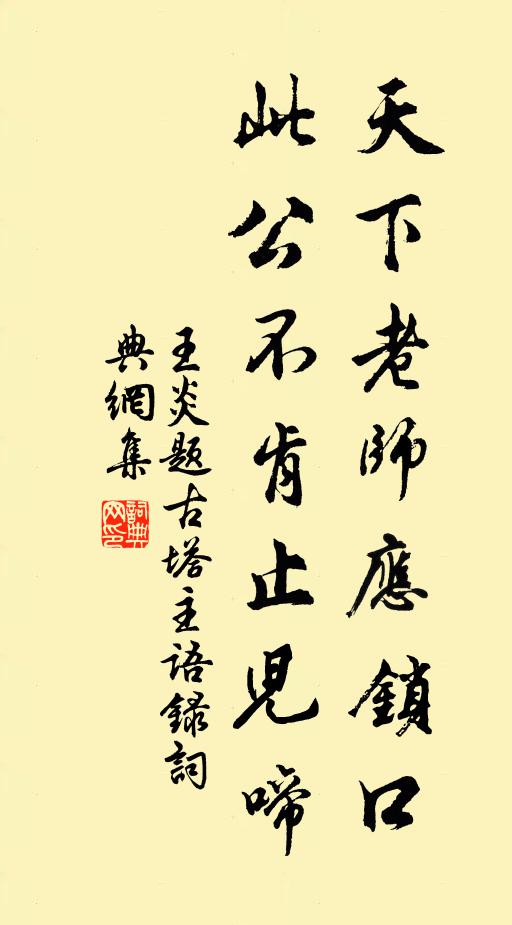 天下老師應鎖口
此公不肯止兒啼
王炎题古塔主語錄詞
典網集
詞典
网印